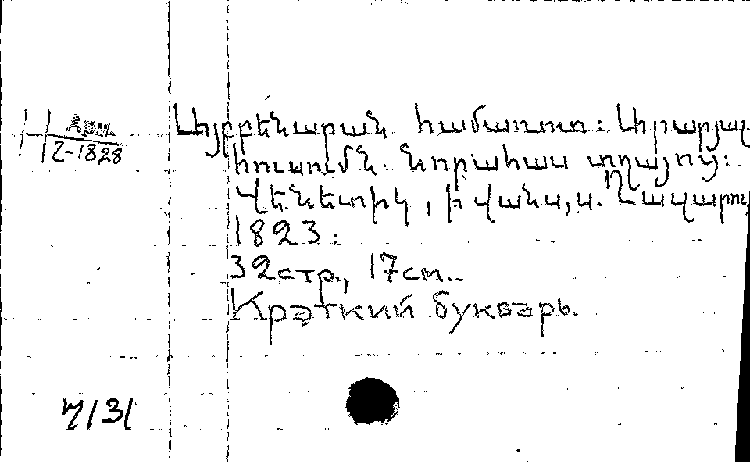 Այբբենարան համառոտ: Արարյալ
ի ուսումն նորահաս տղայոց:
Վենետիկ, ի վանս, ս. Ղազարու
1823:
32стр., 17см..
Краткий букварь.
2-1828
7131